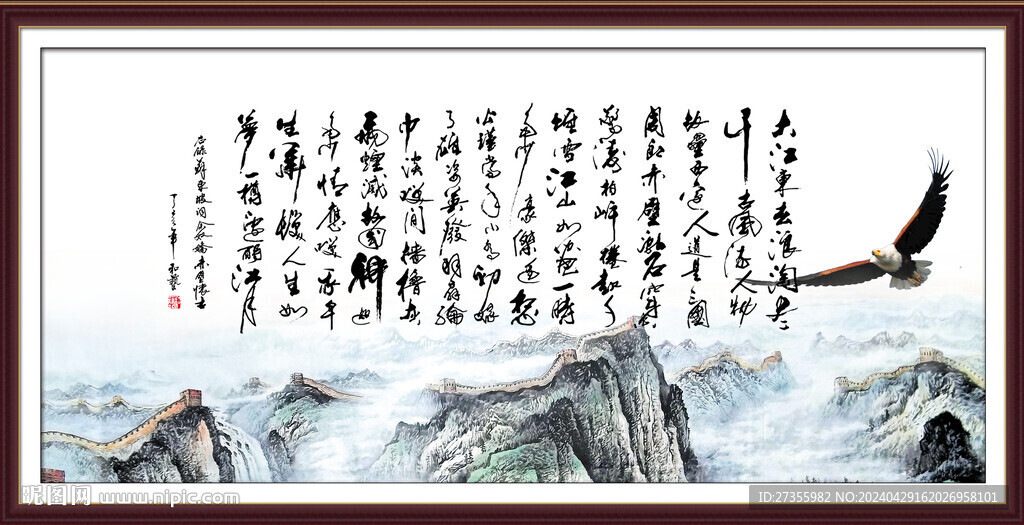 大江東去浪淘盡
千古風流人物
故壘西邊人道是三國
周郎赤壁亂石穿空
驚濤拍岸捲起千
堆雪江山如畫一時
多少豪傑遥想
公瑾當年小喬初嫁
了雄姿英發羽扇綸
巾談笑間檣櫓灰
飛煙滅故國神遊
多情應笑我早
生華髮人生如
夢一樽還酹江月
錄蘇東坡詞念奴嬌赤壁懷古
丁亥年
昵图网 www.nipic.com
ID:27355982 NO:20240429162026958101